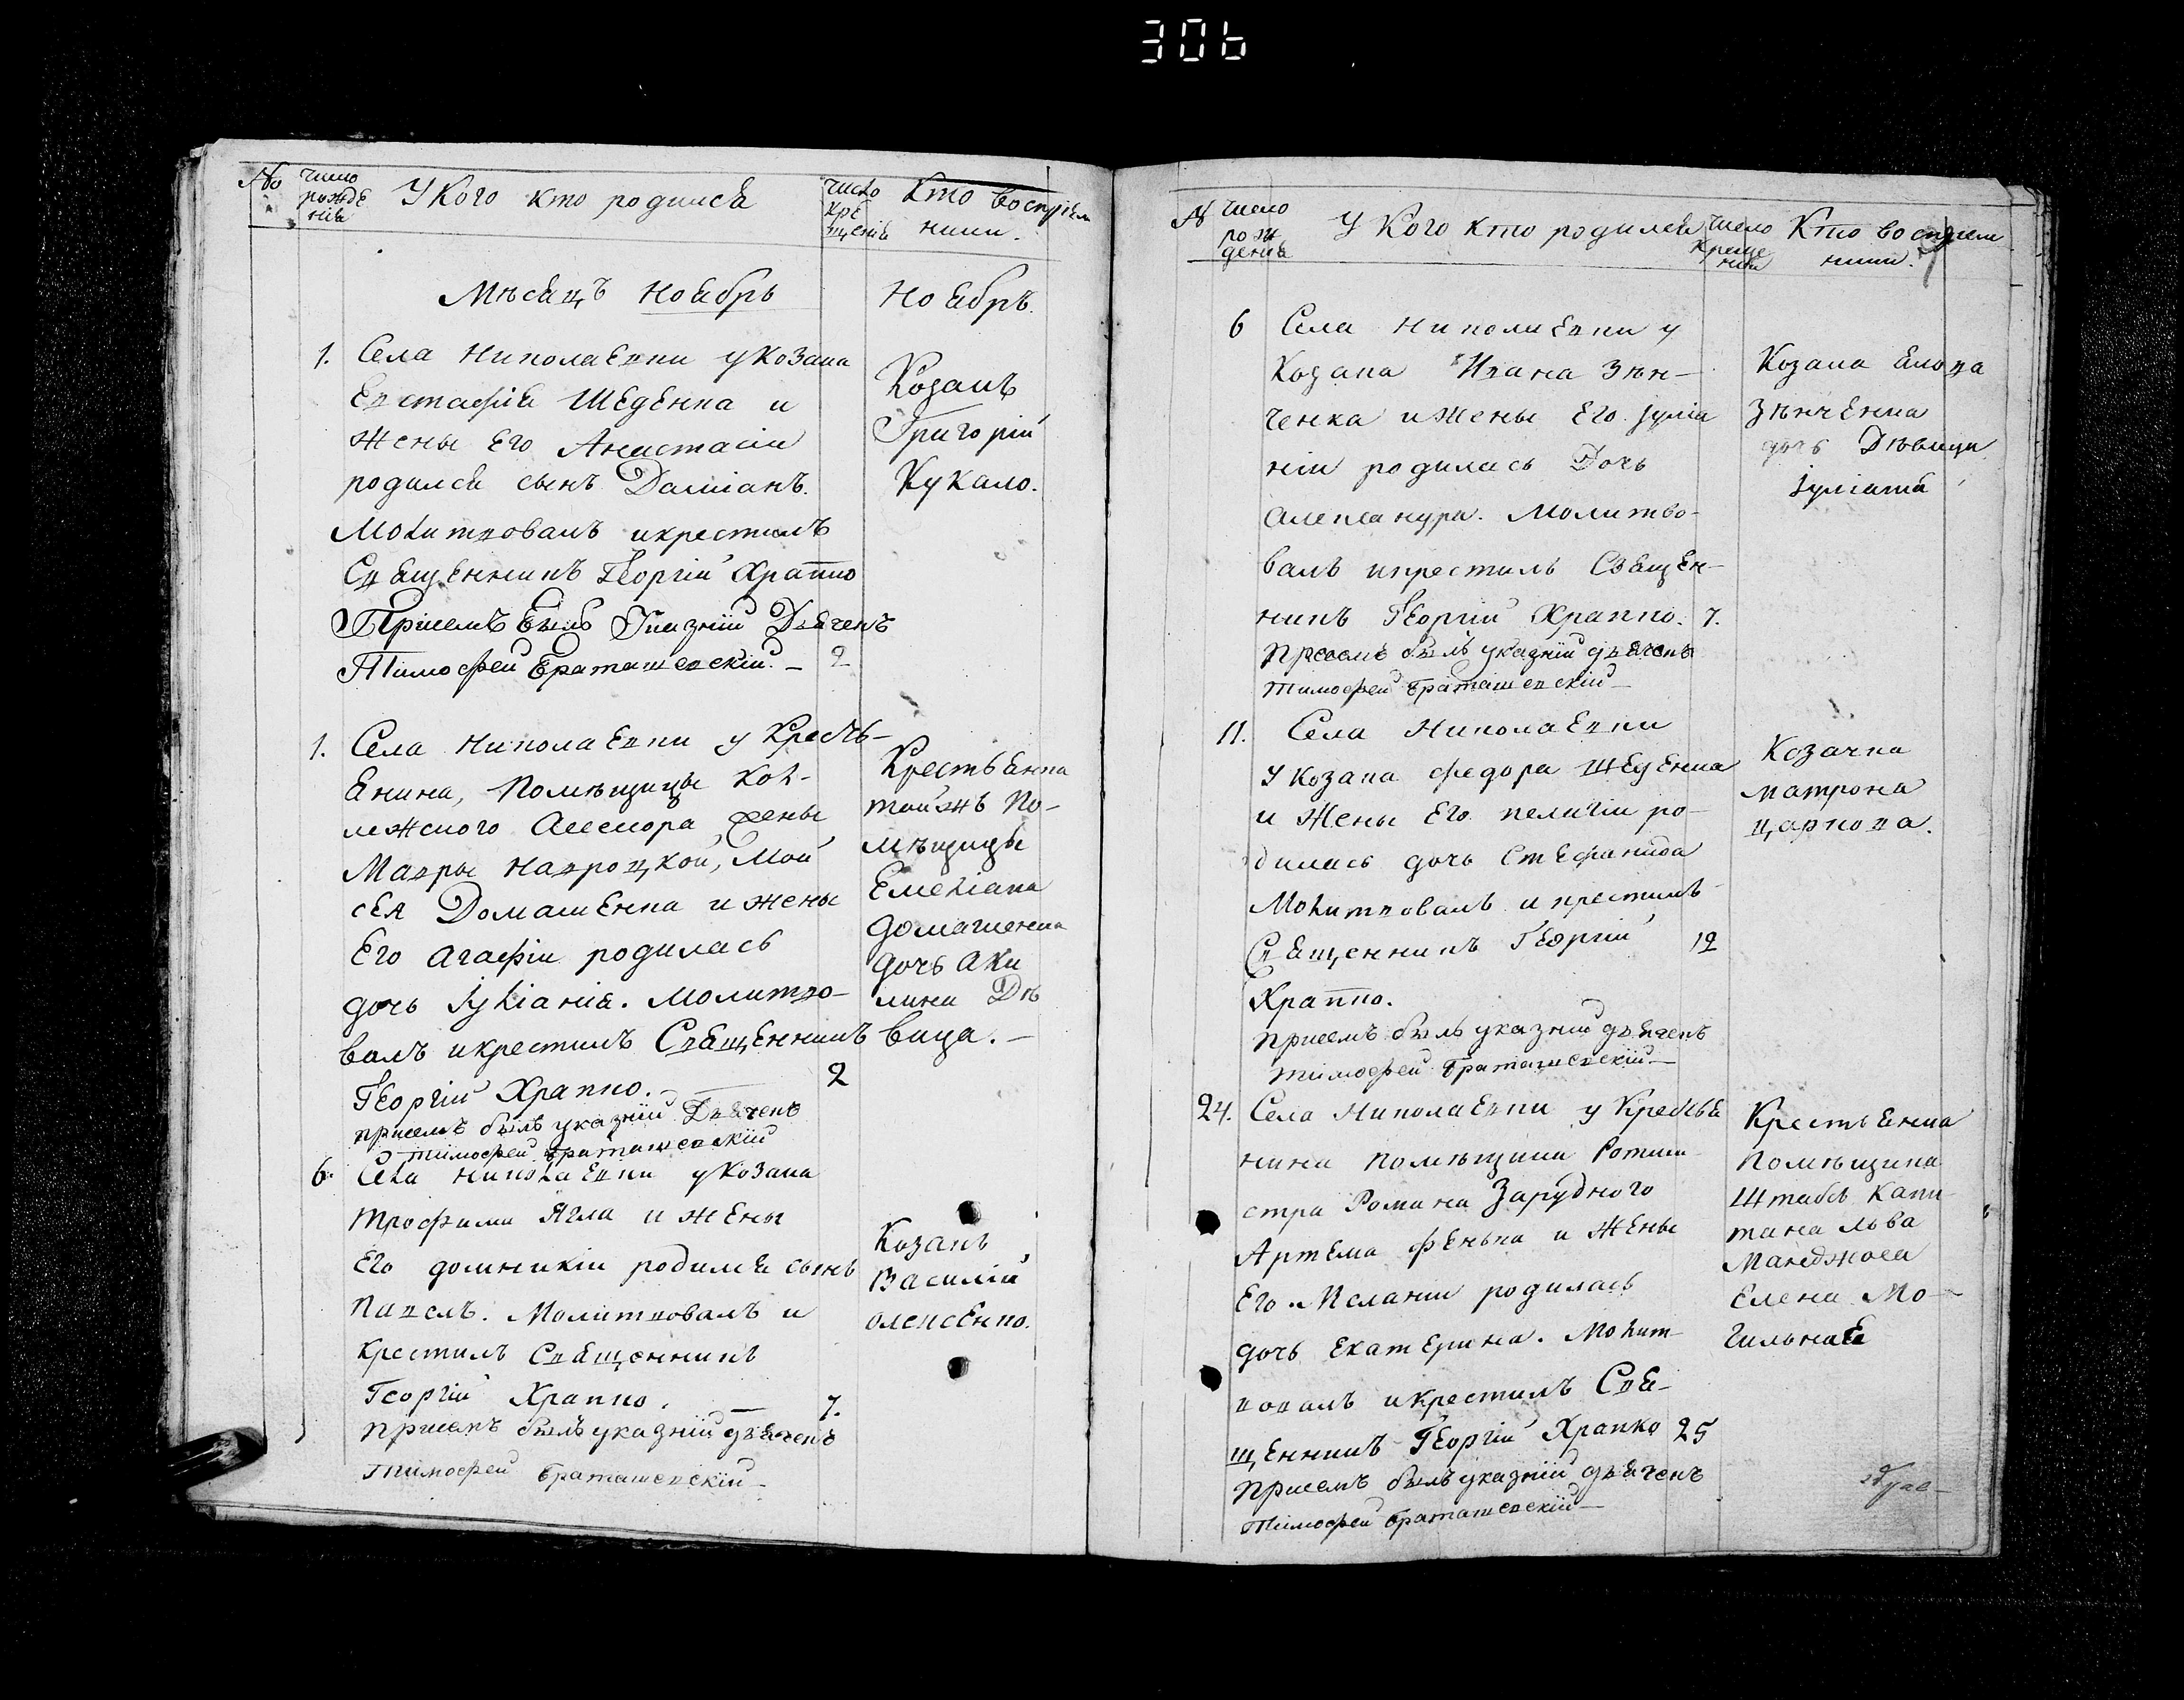 306
№ число рожде нія У Кого кто родился число кре щенія Кто воспріем ники.
Мѣсяцъ Ноябрь
Ноябрь.
1. Села Николаевки у Козака
Евстафія Шеденка и
жены Его Анастасіи
родился сынъ Даміанъ.
Молитвовалъ и крестилъ
Священникъ Георгій Храпко
При семъ былъ Указній Дьячекъ
Тимофей Браташевскій. – 2
Козакъ
Григорій
Кукало.
1. Села Николаевки у Кресть-
янина, Помѣщицы Кол-
лежского Асесора жены
Мавры Навроцкой, Мой
сея Домашенка и жены
Его Агафіи родилась
дочь Іуліанія. Молитво-
валъ и крестилъ Священникъ
Георгій Храпко. 2
при семъ былъ указній Дьячекъ
тимофей браташевскій
Крестьянка
той жъ По-
мѣщицы
Емеліана
домашенка
дочь Аки
лина Дѣ
вица. –
6. Села Николаевки у Козака
Трофима Ягла и жены
Его домникіи родился сынъ
Павелъ. Молитвовалъ и
крестилъ Священникъ
Георгій Храпко. – 7.
При семъ былъ указній дьячекъ
Тимофей браташевскій –
Козакъ
Василій
олексенко.
№ число рож денія У Кого кто родился число креще нія Кто воспріем ники.
6 Села Николаевки у
Козака Ивана Зѣн-
ченка и жены Его Іуліа
ніи родилась Дочь
Александра. Молитво-
валъ и крестилъ Священ-
никъ Георгій Храпко. 7.
При семъ былъ указній дьячекъ
тимофей браташевскій –
Козака
Зѣнченка
дочь Дѣвица
Іуліанія
11. Села Николаевки
У Козака Федора Шеденка
и Жены Его пелагіи ро-
дилась дочь Стефанида
Молитвовалъ и крестилъ
Священникъ Георгій 12
Храпко.
при семъ былъ указній дьячекъ
тимофей браташевскій –
Козачка
матрона
царкова.
24. Села Николаевки у Крестья
нина помѣщика Ротми-
стра Романа Зарудного
Артема Фенька и Жены
Его Меланіи родилась
дочь Екатерина. Молит-
вовалъ и крестилъ Свя-
щенникъ Георгій Храпко 25
При семъ былъ указній дьячекъ
Тимофей браташевскій –
Крестьянка
помѣщика
Штабсъ Капи-
тана Льва
Манджоса
Елена Мо-
гильная